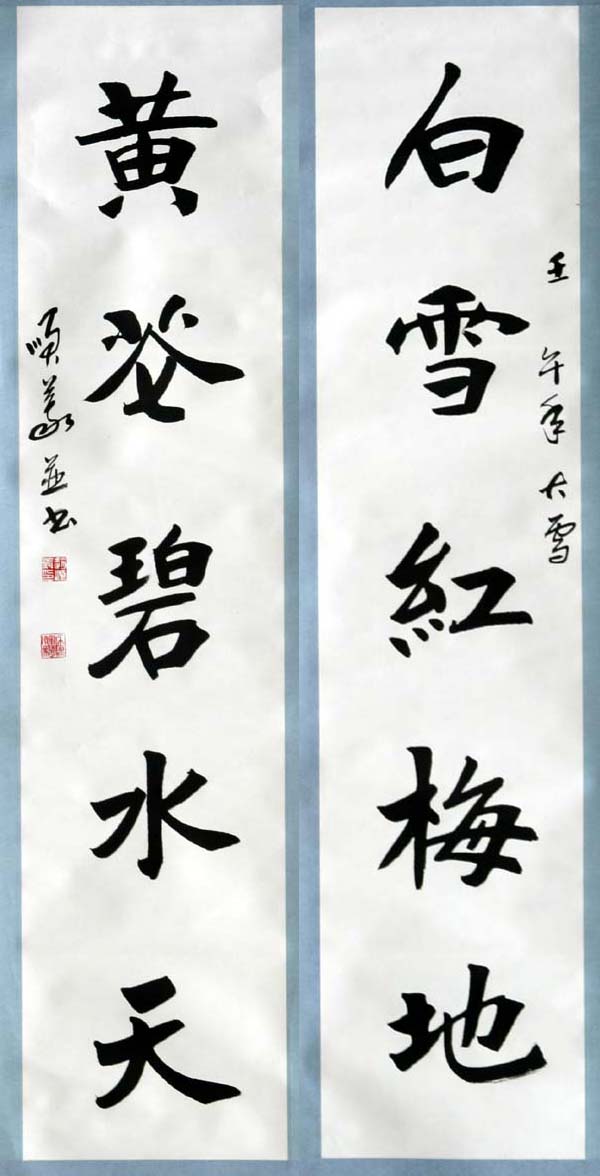 白雪紅梅地
壬午年大雪
黄花碧水天
並书